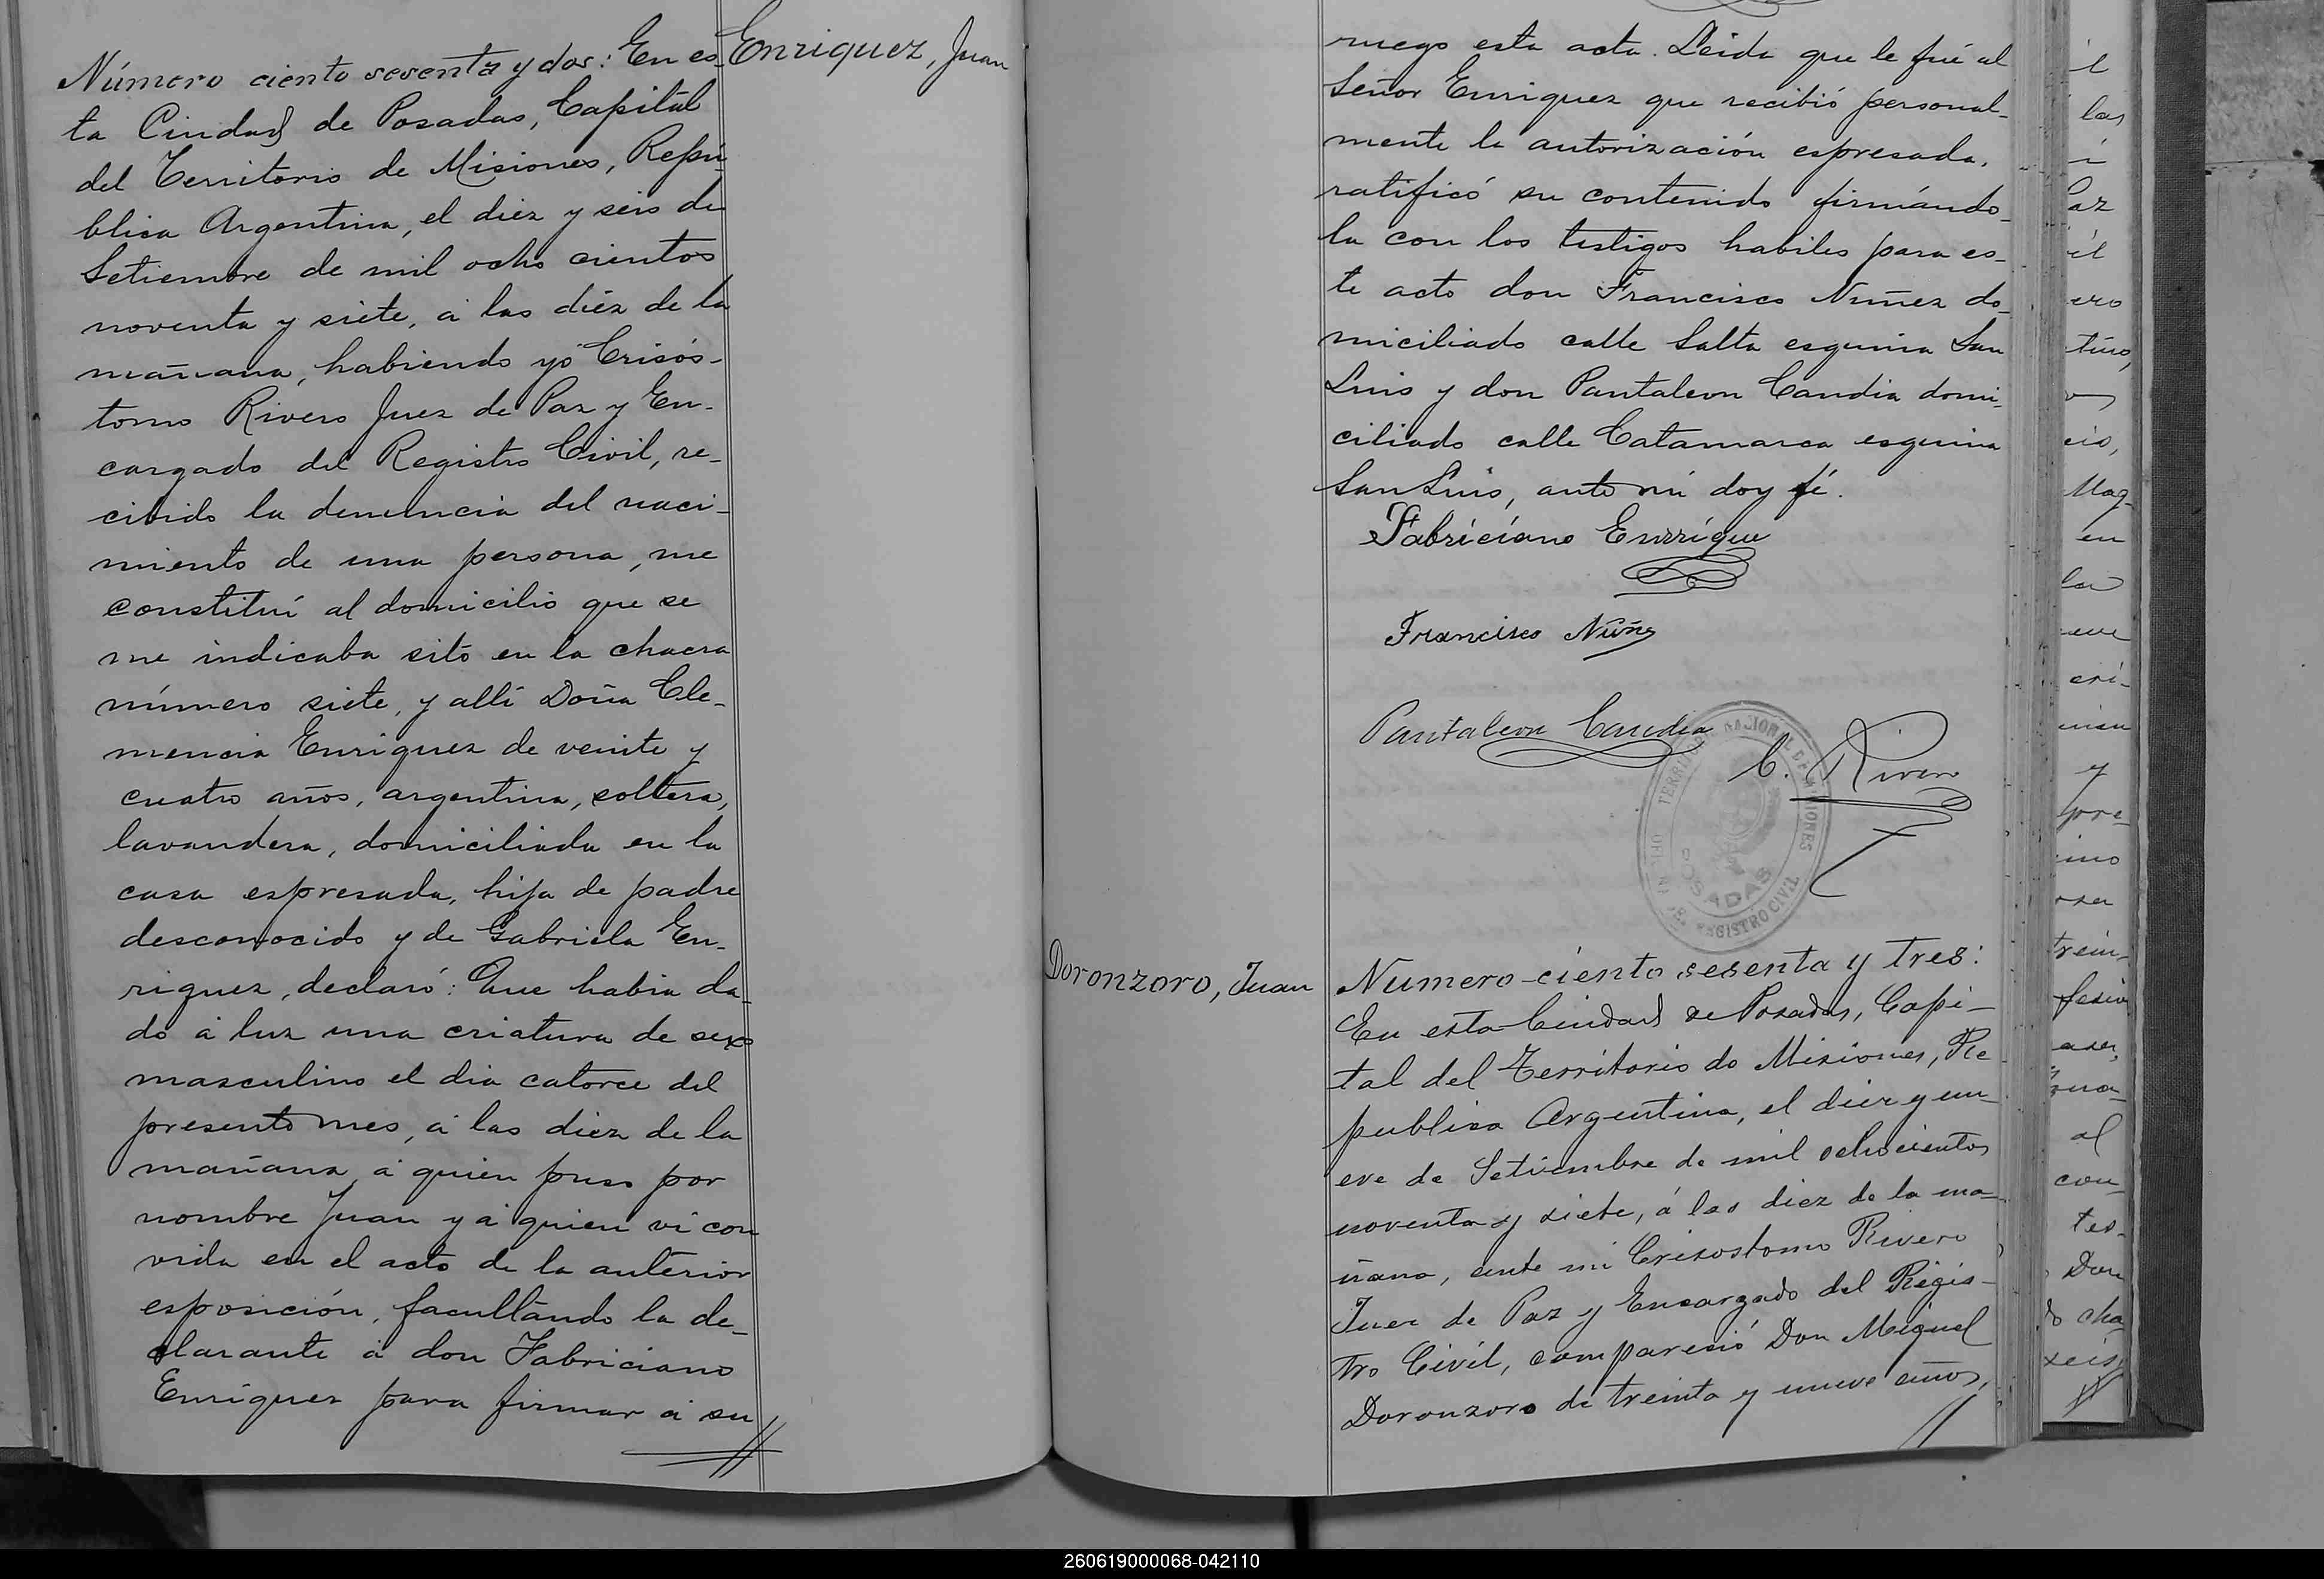 Enriquez, Juan
Número ciento sesenta y dos: En es-
ta Ciudad de Posadas, Capital
del Territorio de Misiones, Repú-
blica Argentina, el diez y seis de
Setiembre de mil ocho cientos
noventa y siete, á las diéz de la
mañana, habiendo yó Crisós-
tomo Rivero Juez de Paz y En-
cargado del Registro Civil, re-
cibido la denuncia del naci-
miento de una persona, me
constituí al domicilio que se
me indicaba sito en la chacra
número siete, y allí Doña Cle-
mencia Enriquez de veinte y
cuatro años, argentina, soltera,
lavandera, domiciliada en la
casa espresada, hija de padre
desconocido y de Gabriela En-
riquez, declaró: Que habia da-
do á luz una criatura de sexo
masculino el dia catorce del
presente mes, á las diez de la
mañana, á quien puso por
nombre Juan y á quien vi con
vida en el acto de la anterior
esposición, facultando la de-
clarante á don Fabriciano
Enriquez para firmar á su
ruego esta acta. Leida que le fué al
Señor Enriquez que recibió personal-
mente la autorización espresada,
ratificó su contenido firmándo-
la con los testigos habiles para es-
te acto don Francisco Nuñez do-
miciliado calle Salta esquina San
Luis y don Pantaleon Candia domi-
ciliado calle Catamarca esquina
San Luis, ante mí doy fé.
Fabriciano Enrrique
Francisco Núñez
Pantaleon Candia
C. Rivero
TERRITORIO NACIONAL DE MISIONES
POSADAS
REGISTRO CIVIL
Doronzoro, Juan
Numero ciento sesenta y tres:
En esta Ciudad de Posadas, Capi-
tal del Territorio de Misiones, Re-
publica Argentina, el diez y nu-
eve de Setiembre de mil ochocientos
noventa y siete, á las diez de la ma-
ñana, ante mi Crisostomo Rivero
Juez de Paz y Encargado del Regis-
tro Civil, comparesió Don Miguel
Doronzoro de treinta y nueve años,
260619000068-042110